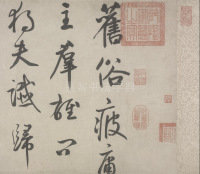 舊俗疲庸
主羣雄問
独夫讖歸